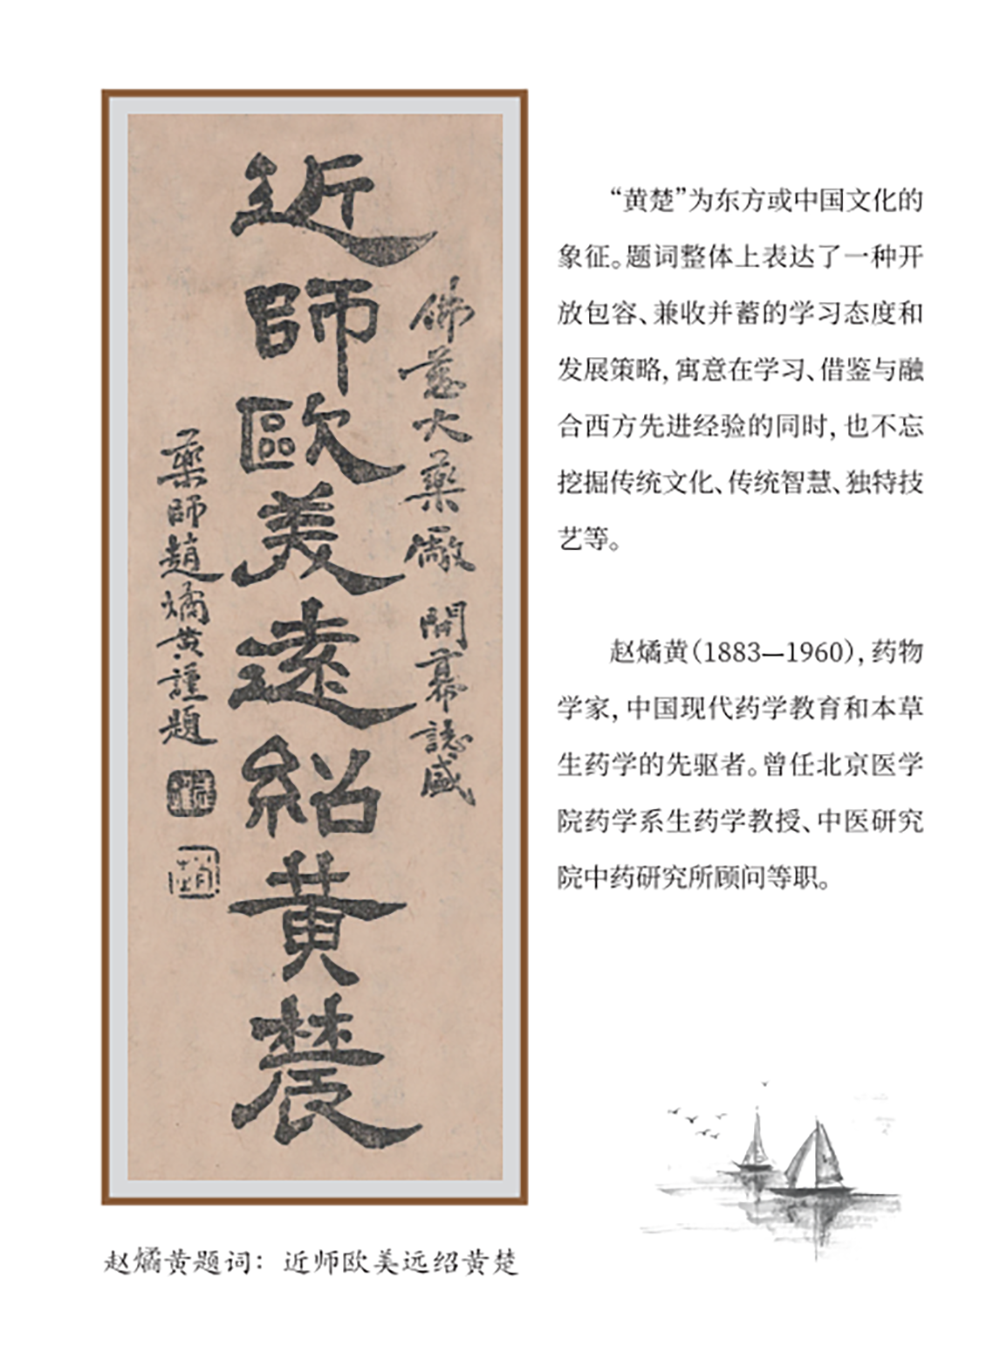 佛慈大藥廠 開幕誌盛
近師歐美遠紹黄辳
藥師趙燏黄謹題
赵燏黄题词：近师欧美远绍黄楚
“黄楚”为东方或中国文化的
象征。题词整体上表达了一种开
放包容、兼收并蓄的学习态度和
发展策略，寓意在学习、借鉴与融
合西方先进经验的同时，也不忘
挖掘传统文化、传统智慧、独特技
艺等。
赵燏黄（1883—1960），药物
学家，中国现代药学教育和本草
生药学的先驱者。曾任北京医学
院药学系生药学教授、中医研究
院中药研究所顾问等职。